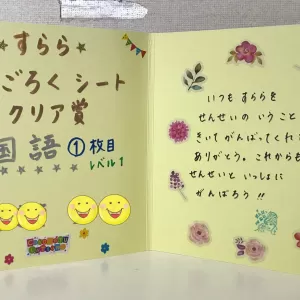 ★すらら★
ごろく シート
クリア賞
国語 ①枚目
レベル1
いつも すららを
せんせいの いうこと
きいて がんばってくれて
ありがとう。これからも
せんせいと いっしょに
がんばろう!!